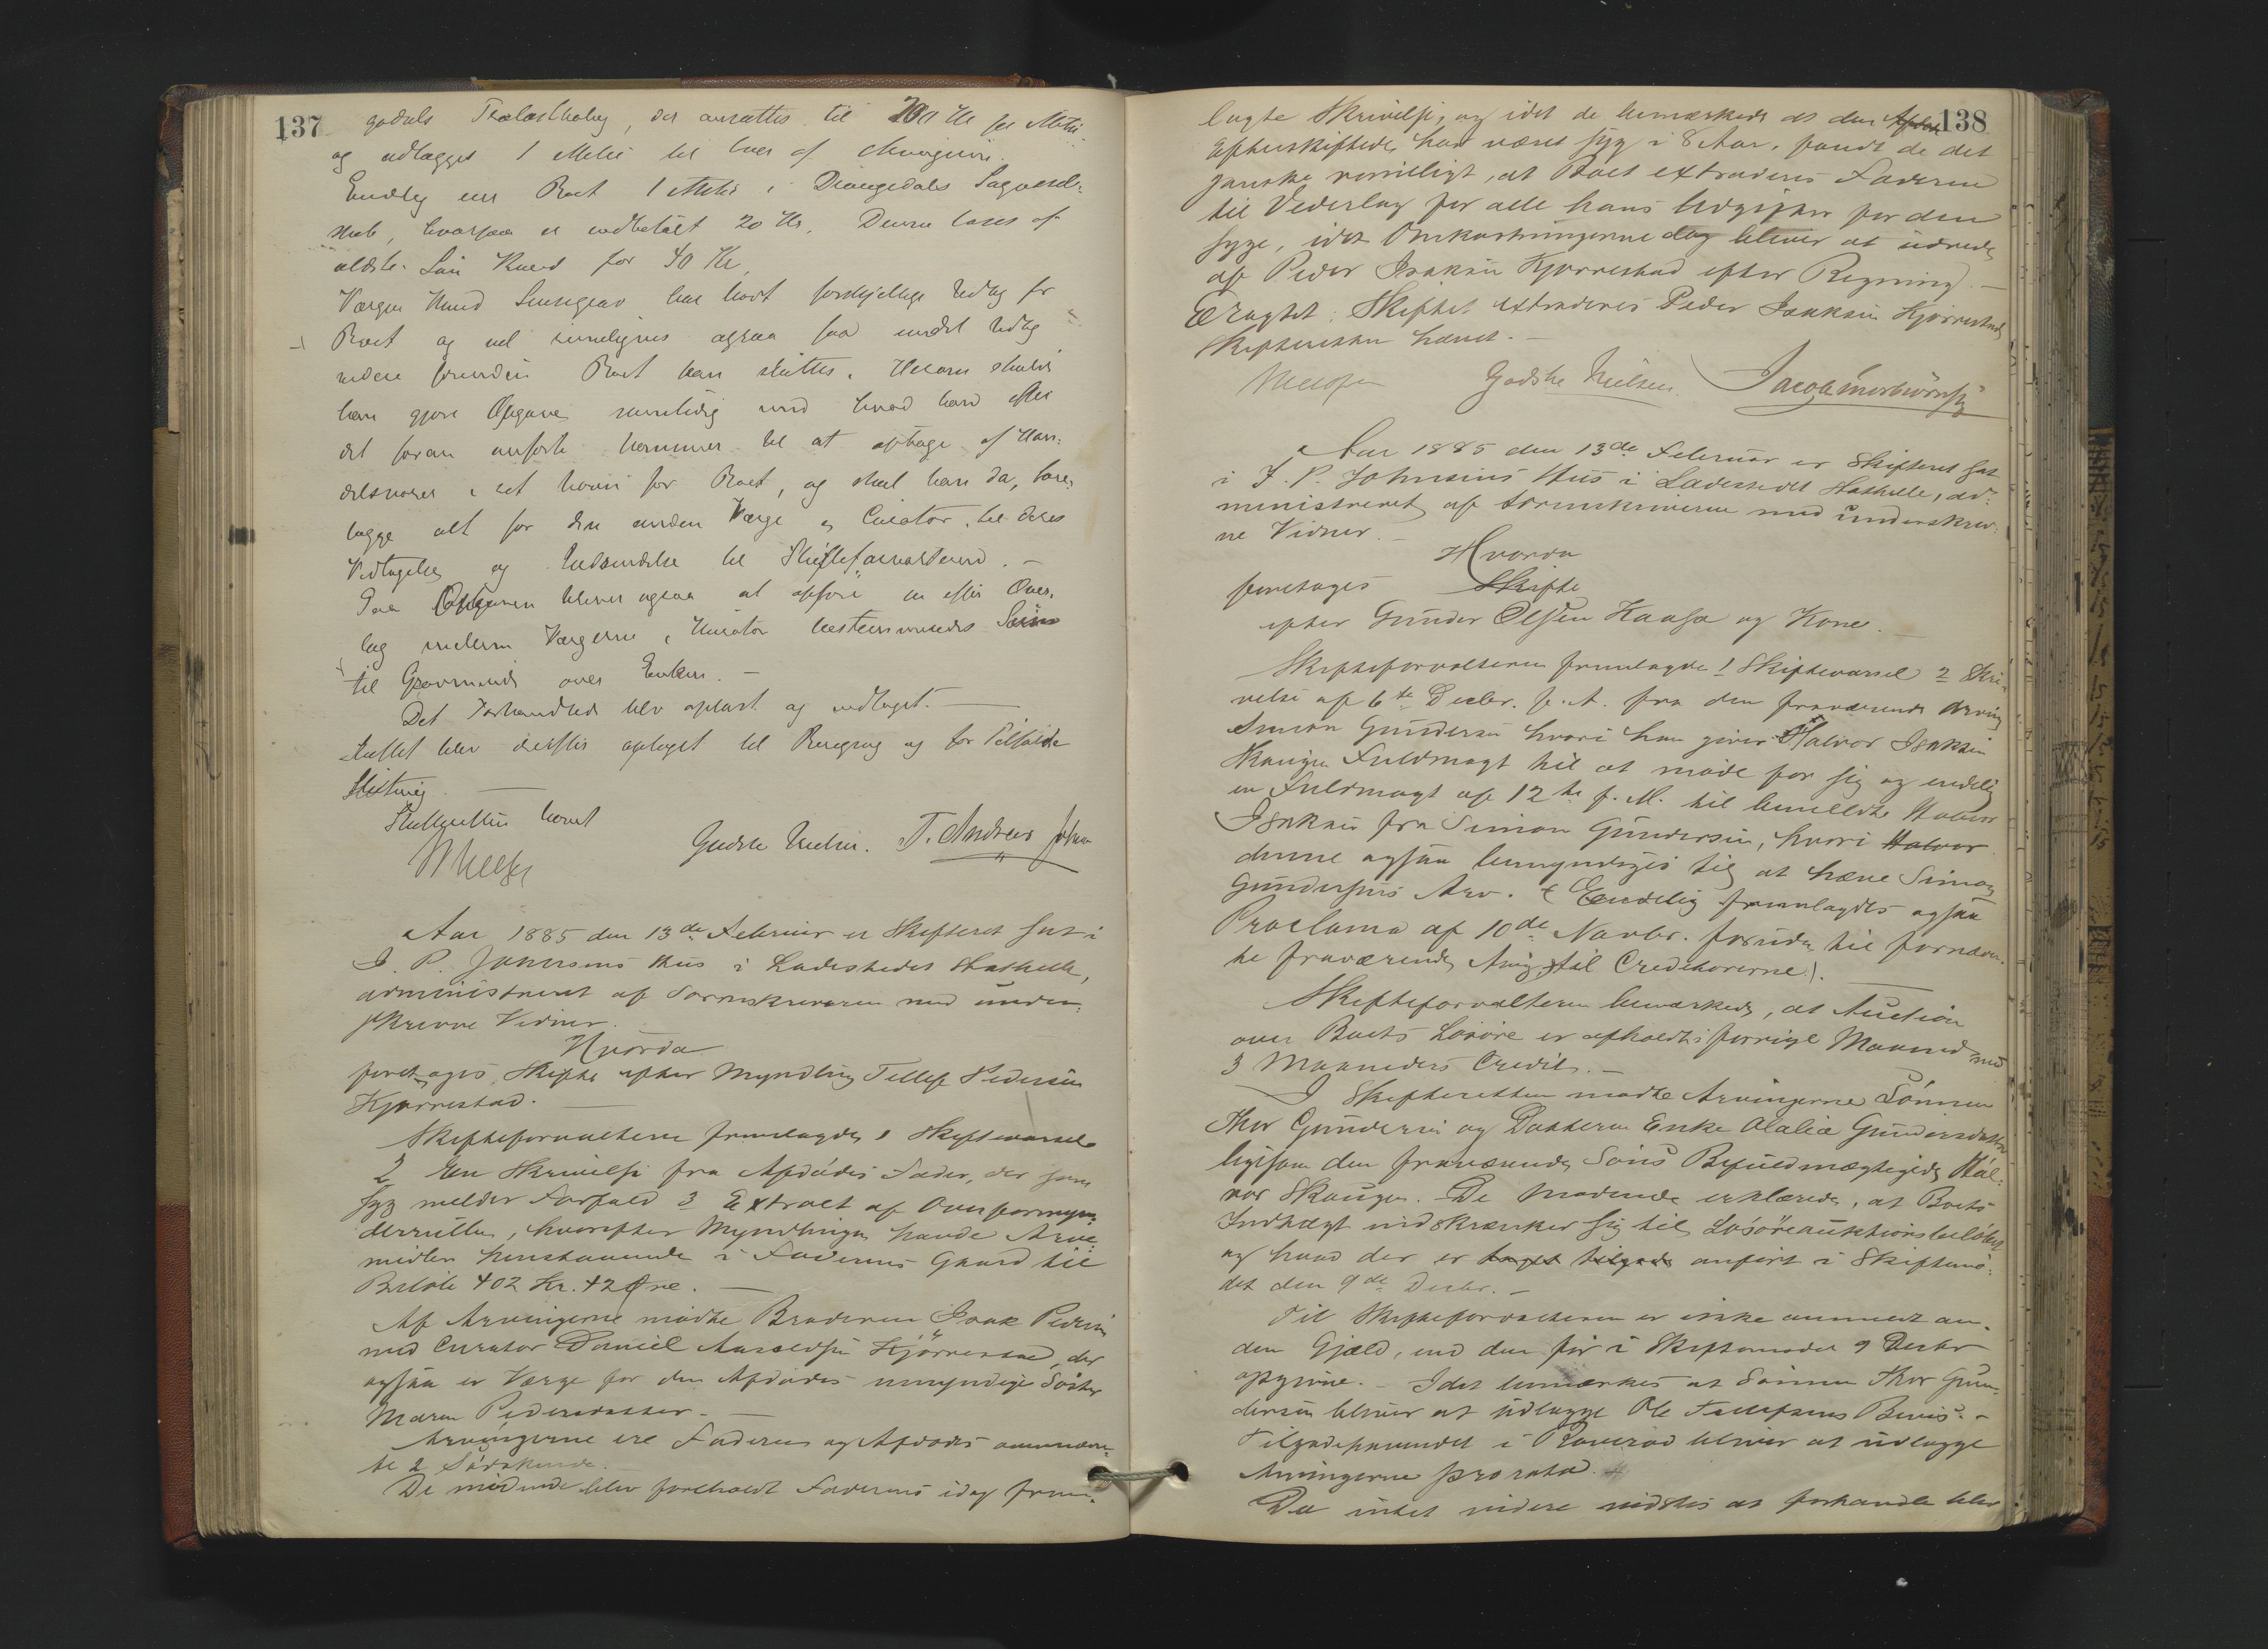 137
godals Trælastbolag, der ansattes til 200 Kr per Metri
og udlægges 1 Metri til hver af
Endelig eier Boet 1 Metri i Drangedals Sagaards-
skab, hvorpaa er indbetalt 20 Kr. Denne loses af
ældste Søn Knud for 40 Kr.
Værgen Knud har havt forskjellige Udlæg for
Boet og vil rimeligvis ogsaa faa endel Udlæg
videre forinden Boet kan sluttes. Herom skulde
han gjøre Opgave samtidig med hvad han efter
det foran anførte kommer til at optage af Han-
delsvarer i et for Boet, og skal han da, fore-
lægge alt for den anden Værge og Curator til deres
Vedtagelse og Indsendelse til Skifteforvalteren.
Paa Opgaven bliver ogsaa at opføre en efter Over-
læg mellem Værgerne & Kurator bestemmendes
til Gravminde over Enken.
Det Forhandlede blev oplæst og vedtaget.
Skiftet blev derefter optaget til Beregning og for Tilfælde
Slutning.
Skifteretten hævet
Godske Nielsen. T. Andreas Johnsen
Aar 1885 den 13de Februar er Skifteret sat i
J. P. Johnsens Hus i Ladestedet Stathelle,
administreret af Sorenskriveren med under-
skrevne Vidner.
Hvorda
foretoges Skifte efter Myndling Tellef Pedersen
Kjørrestad.
Skifteforvalteren fremlagde 1 Skiftevarsel
2 En Skrivelse fra Afdødes Fader, der som
syg melder Forfald 3 Extract af Overformyn-
derrullen, hvorefter Myndlingen havde Arve-
midler henstaaende i Faderens Gaard til
Beløb 402 Kr. 42 Øre.
Af Arvingerne mødte Broderen Isak Pedersen
med Curator Daniel Kjørrestad, der
ogsaa er Værge for den Afdødes umyndige Søster
Maren Pedersdatter.
Arvingerne ere Faderen og Afdødes ommeldte
2 Sødskende.
De mødende blev foreholdt Faderens idag frem-
138
lagte Skrivelse, og idet de bemærkede at den Afdøde
Efterskiftede har været syg i 8 Aar, fandt de det
ganske rimeligt, at Boet extraderes Faderen
til Vederlag for alle hans Udgifter for den
syge, idet Omkostningerne dog bliver at udrede
af Peder Isaksen Kjørrestad efter Regning.
Eragtet: Skiftet extraderes Peder Isaksen Kjørrestad
Skifteretten hævet.
Godske Nielsen.
Aar 1885 den 13de Februar er Skifteret sat
i J. P. Johnsens Hus i Ladestedet Stathelle, ad-
ministreret af Sorenskriveren med underskrev-
ne Vidner.
Hvorda
foretages Skifte
efter Gunder Olsen Haasa og Kone.
Skifteforvalteren fremlagde 1 Skiftevarsel 2 Skri-
velse af 6te Decbr. f. A. fra den fraværende Arving
Simon Gundersen hvori han giver Halvor Isaksen
Skaugen Fuldmagt til at møde for sig og endelig
en Fuldmagt af 12te f. M. til bemeldte Halvor
Isaksen fra Simon Gundersen, hvori Halvor
denne ogsaa bemyndiges til at hæve Simon
Gundersens Arv. (Endelig fremlagdes ogsaa
Proclama af 10de Novbr. foruden til fornævn-
te fraværende Arving, til Creditorerne).
Skifteforvalteren bemærkede, at Auction
over Boets Løsøre er afholdt i forrige Maaned med
3 Maaneders Credit.
I Skifteretten mødte Arvingerne Sønnen
Thor Gundersen og Datteren Enke Olalia Gundersdatter
ligesom den fraværende Søns Befuldmægtigede Hal-
vor Skaugen. De Mødende erklærede, at Boets
Indtægt indskrænker sig til Løsøreauktionsbeløbet
og hvad der er anført i Skiftemø-
det den 9de Decbr.
Til Skifteforvalteren er ikke anmeldt an-
den Gjæld, end den før i Skiftemødet 9 Decbr
opgivne. Idet bemærkes at Sønnen Thor Gun-
dersen bliver at udlægge Ole Tellefsens Bevis.
i bliver at udlægge
Arvingerne pro rata.
Da intet videre vidstes at forhandle blev